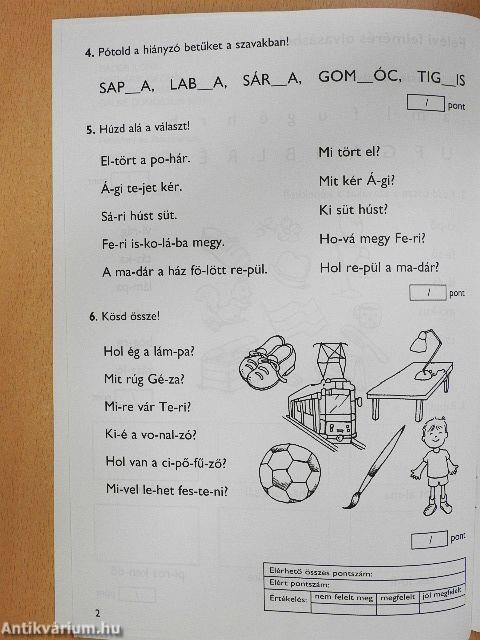 4. Pótold a hiányzó betűket a szavakban!
SAP__A, LAB__A, SÁR__A, GOM__ÓC, TIG__IS
/ pont
5. Húzd alá a választ!
El-tört a po-hár. Mi tört el?
Á-gi te-jet kér. Mit kér Á-gi?
Sá-ri húst süt. Ki süt húst?
Fe-ri is-ko-lá-ba megy. Ho-vá megy Fe-ri?
A ma-dár a ház fö-lött re-pül. Hol re-pül a ma-dár?
/ pont
6. Kösd össze!
Hol ég a lám-pa?
Mit rúg Gé-za?
Mi-re vár Te-ri?
Ki-é a vo-nal-zó?
Hol van a ci-pő-fű-ző?
Mi-vel le-het fes-te-ni?
/ pont
Elérhető összes pontszám:
Elért pontszám:
Értékelés: nem felelt meg megfelelt jól megfelelt
2
Antikvárium.hu